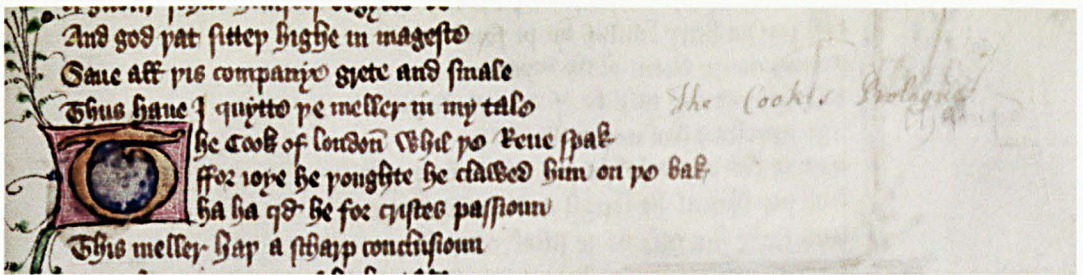 And god þat sitteþ highe in mageste
Saue aƚƚ þis companye grete and smale
Thus haue I quytte þe meller in my tale
The Cook of londoñ Whil þe Reue spak
ffor ioye he þoughte he clawed him on þe bak
Ha ha qđ he for cristes passioun
This meller haþ a scharp conclusioun
the Cookes Prologue